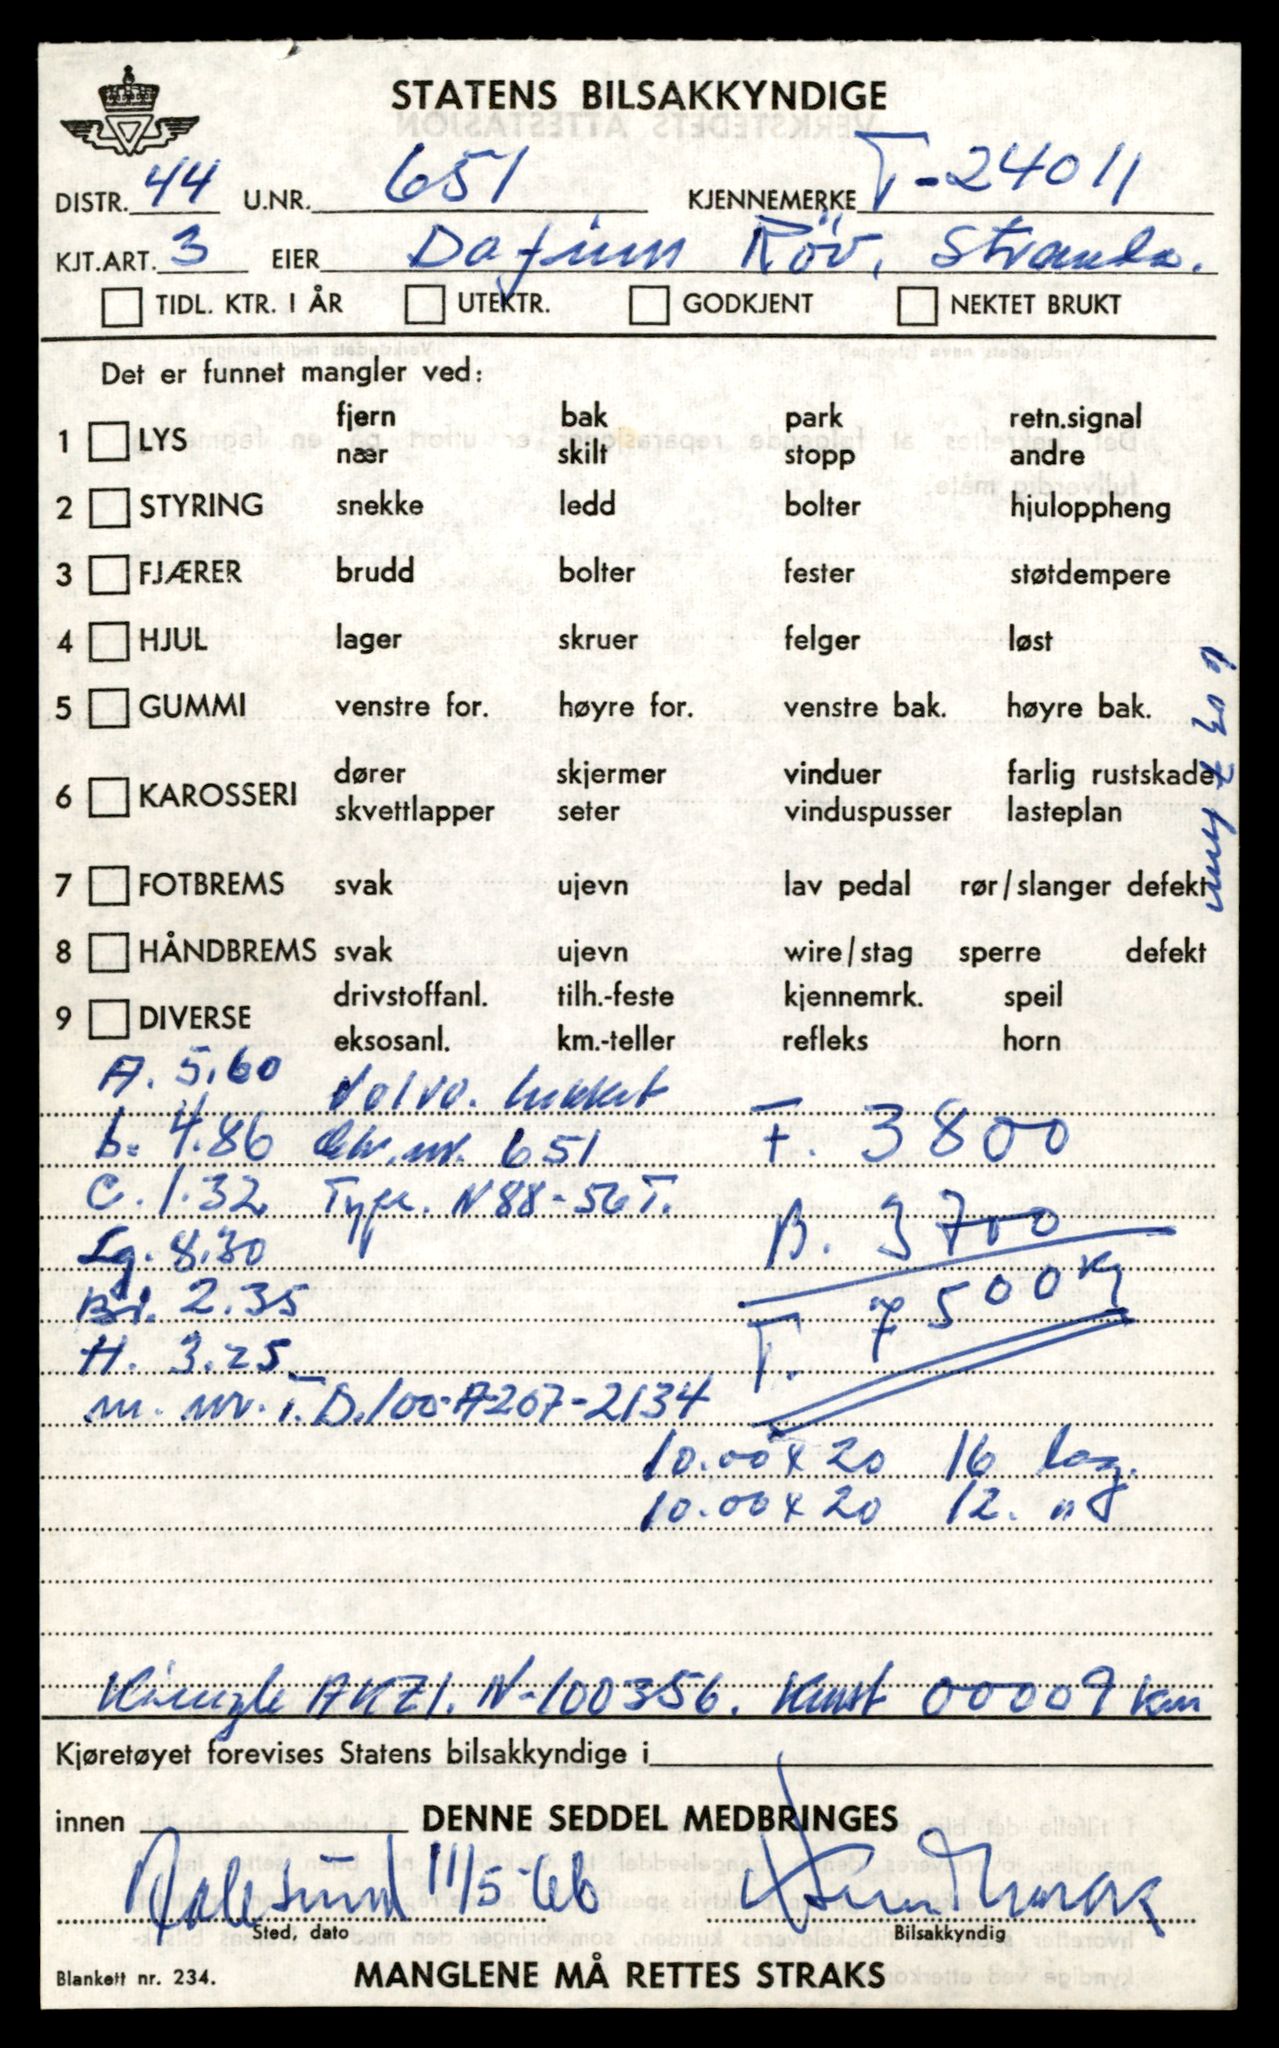 STATENS BILSAKKYNDIGE
DISTR. 44 U.NR. 651 KJENNEMERKE T-24011
KJT.ART. 3 EIER Dafinn Röv, Stranda.
TIDL. KTR. I ÅR UTEKTR. GODKJENT NEKTET BRUKT
Det er funnet mangler ved:
fjern bak park retn.signal
1 LYS
nær skilt stopp andre
2 STYRING snekke ledd bolter hjuloppheng
3 FJÆRER brudd bolter fester støtdempere
4 HJUL lager skruer felger løst
5 GUMMI venstre for. høyre for. venstre bak. høyre bak.
dører skjermer vinduer farlig rustskade
6 KAROSSERI
skvettlapper seter vinduspusser lasteplan
7 FOTBREMS svak ujevn lav pedal rør/slanger defekt
8 HÅNDBREMS svak ujevn wire/stag sperre defekt
drivstoffanl. tilh.-feste kjennemrk. speil
9 DIVERSE
eksosanl. km.-teller refleks horn
A. 5.60 Volvo. lukket
b. 4.86 nr. 651 F. 3800
C. 1.32 Type. N88-56T.
B. 3700
Lg. 8.30
Br. 2.35 T. 7500 kg
H. 3.25
m. nr. T.D.100-A-207-2134
10.00 x 20 16 lag.
10.00 x 20 12. "
N-100356. 00009 km
Kjøretøyet forevises Statens bilsakkyndige i
innen DENNE SEDDEL MEDBRINGES
Aalesund 11/5-66
Sted, dato Bilsakkyndig
Blankett nr. 234. MANGLENE MÅ RETTES STRAKS